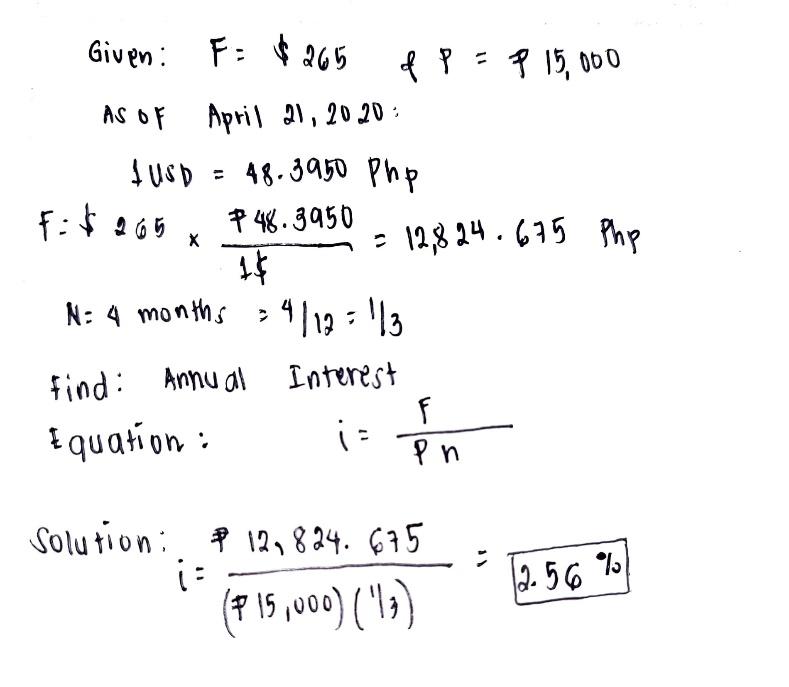 Given: F = $ 265 & P = ₱ 15,000
As of April 21, 2020:
1 USD = 48.3950 Php
F = $ 265 x ₱48.3950 / 1$ = 12,824.675 Php
N = 4 months = 4/12 = 1/3
Find: Annual Interest
Equation: i = F / Pn
Solution: i = ₱ 12,824.675 / (₱ 15,000) (1/3) = 2.56 %